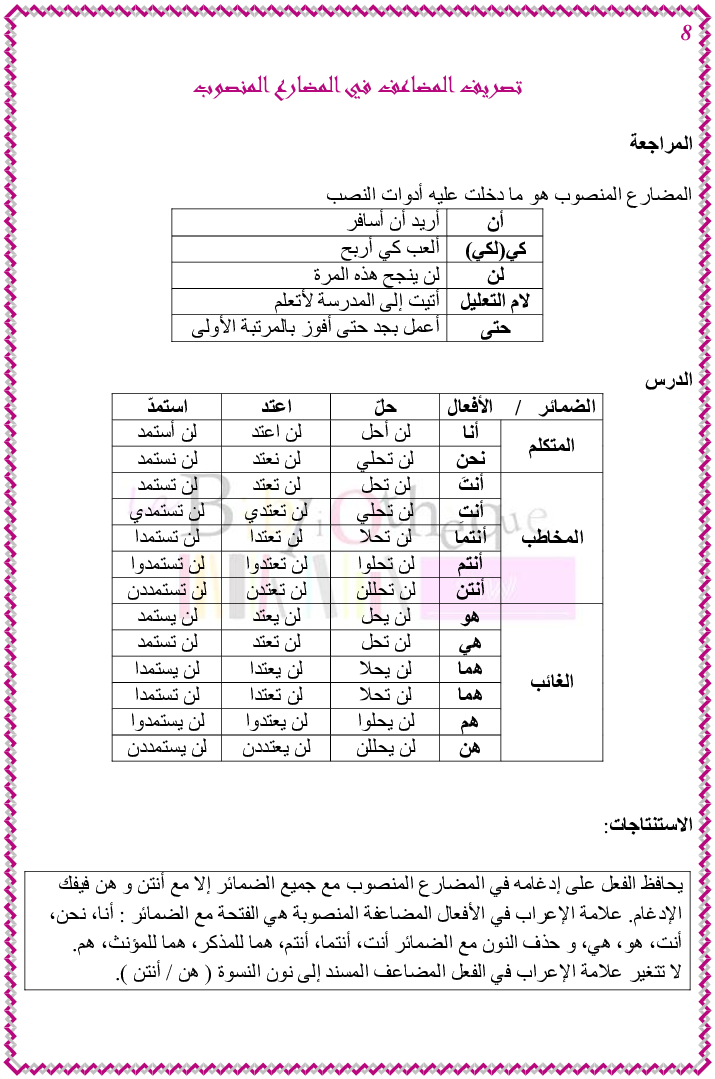 8
تصريف المضاعف في المضارع المنصوب
المراجعة
المضارع المنصوب هو ما دخلت عليه أدوات النصب
أن أريد أن أسافر
كي(لكي) ألعب كي أربح
لن لن ينجح هذه المرة
لام التعليل أتيت إلى المدرسة لأتعلم
حتى أعمل بجد حتى أفوز بالمرتبة الأولى
الدرس
الضمائر / الأفعال حلّ اعتد استمدّ
المتكلم
أنا لن أحل لن اعتد لن أستمد
نحن لن تحلي لن نعتد لن نستمد
المخاطب
أنتَ لن تحل لن تعتد لن تستمد
أنت لن تحلي لن تعتدي لن تستمدي
أنتما لن تحلا لن تعتدا لن تستمدا
أنتم لن تحلوا لن تعتدوا لن تستمدوا
أنتن لن تحللن لن تعتدن لن تستمددن
الغائب
هو لن يحل لن يعتد لن يستمد
هي لن تحل لن تعتد لن تستمد
هما لن يحلا لن يعتدا لن يستمدا
هما لن تحلا لن تعتدا لن تستمدا
هم لن يحلوا لن يعتدوا لن يستمدوا
هن لن يحللن لن يعتددن لن يستمددن
الاستنتاجات:
يحافظ الفعل على إدغامه في المضارع المنصوب مع جميع الضمائر إلا مع أنتن و هن فيفك
الإدغام. علامة الإعراب في الأفعال المضاعفة المنصوبة هي الفتحة مع الضمائر : أنا، نحن،
أنت، هو، هي، و حذف النون مع الضمائر أنت، أنتما، أنتم، هما للمذكر، هما للمؤنث، هم.
لا تتغير علامة الإعراب في الفعل المضاعف المسند إلى نون النسوة ( هن / أنتن ).